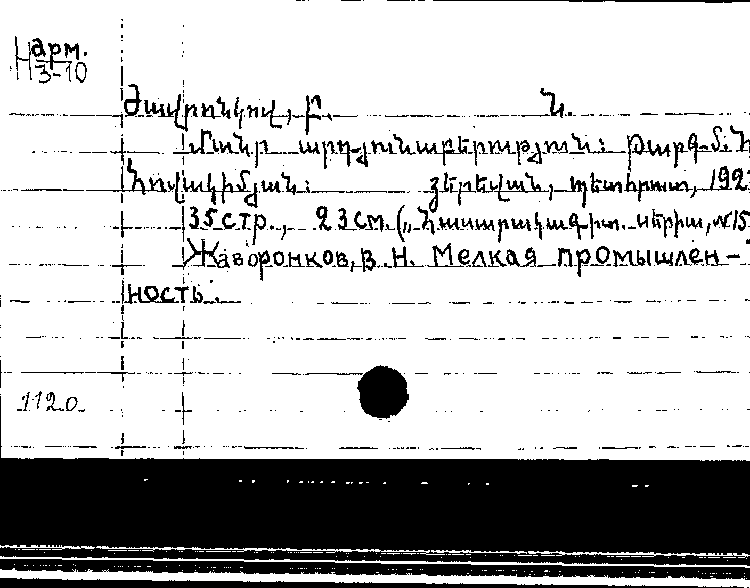 Нарм.
3-10
Ժավրոնկով, Բ. Ն.
Մանր արդյունաբերություն: Թարգմ. Հ
Հովակիմյան: Յերեվան, պետհրատ, 192
35 стр., 23 см. („Հասարակագիտ. սերիա, N15
Жаворонков, В. Н. Мелкая промышлен-
ность.
1120